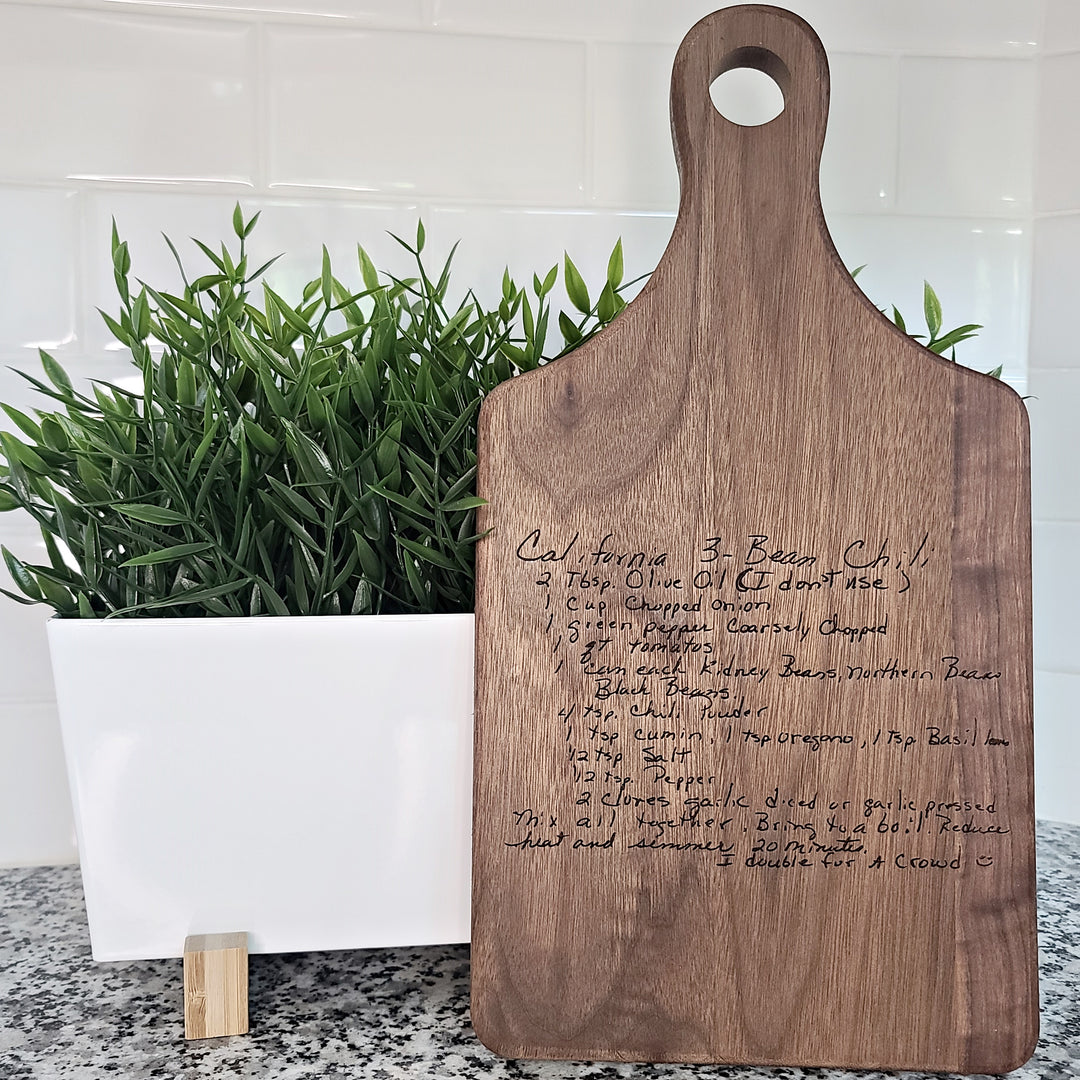 California 3-Bean Chili
2 Tbsp. Olive Oil (I don't use)
1 cup Chopped onion
1 green pepper Coarsely Chopped
1 qt tomatos
1 can each Kidney Beans, Northern Beans
Black Beans.
4 tsp. Chili Powder
1 tsp cumin, 1 tsp oregano, 1 tsp Basil
1/2 tsp Salt
1/2 tsp. Pepper
2 cloves garlic diced or garlic pressed
Mix all together. Bring to a boil. Reduce
heat and simmer 20 minutes.
I double for A Crowd ☺